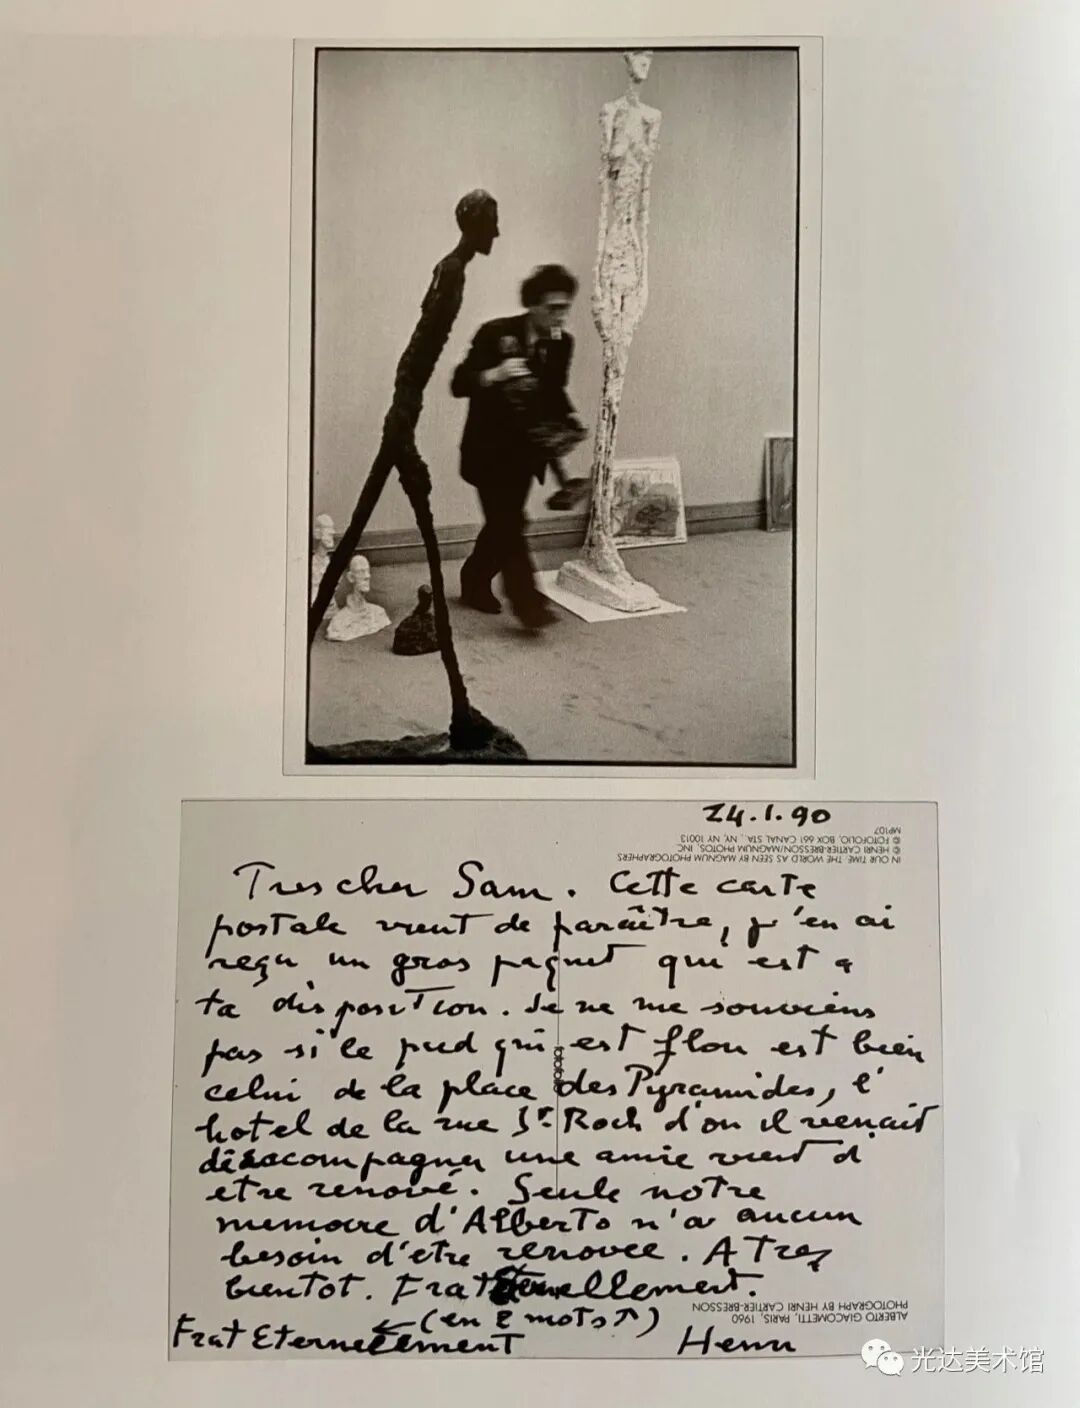 24.1.90
MP107
© FOTOFOLIO, BOX 661 CANAL STA., NY, NY 10013
© HENRI CARTIER-BRESSON/MAGNUM PHOTOS, INC.
IN OUR TIME: THE WORLD AS SEEN BY MAGNUM PHOTOGRAPHERS
Tres cher Sam. Cette carte
postale vient de paraître, j'en ai
reçu un gros paquet qui est a
ta disposition. Je ne me souviens
pas si le pied qui est flou est bien
celui de la place des Pyramides, l'
hotel de la rue St. Roch d'ou il venait
d'accompagner une amie vient d'
etre renové. Seule notre
memoire d'Alberto n'a aucun
besoin d'etre renovee. A Tres
bientot. FratEternellement.
(en 2 mots ↑)
FratEternellement
Henri
ALBERTO GIACOMETTI, PARIS, 1960
PHOTOGRAPH BY HENRI CARTIER-BRESSON
光达美术馆